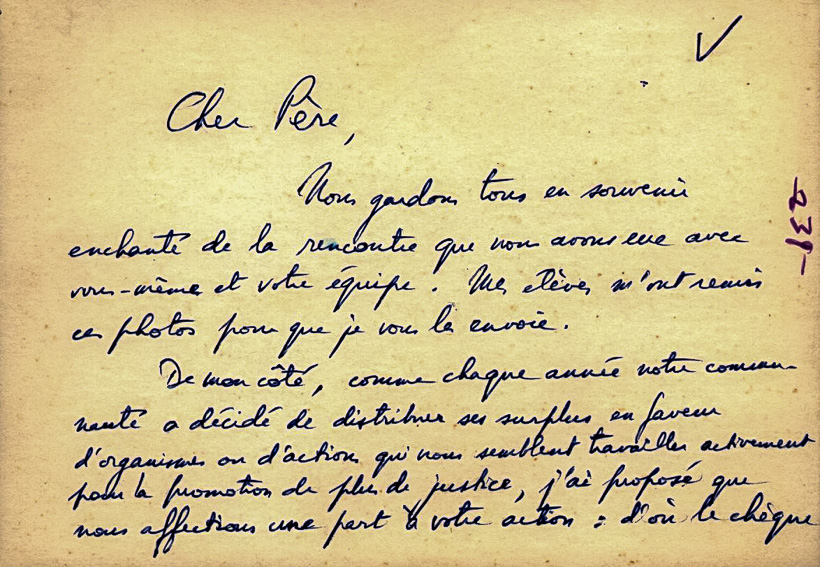 Cher Père,
Nous gardons tous un souvenir
enchanté de la rencontre que nous avons eue avec
vous-même et votre équipe. Mes élèves m'ont remis
ces photos pour que je vous les envoie.
De mon côté, comme chaque année notre commu-
nauté a décidé de distribuer ses surplus en faveur
d'organismes ou d'actions qui nous semblent travailler activement
pour la promotion de plus de justice, j'ai proposé que
nous affections une part à votre action : d'où le chèque
-239-